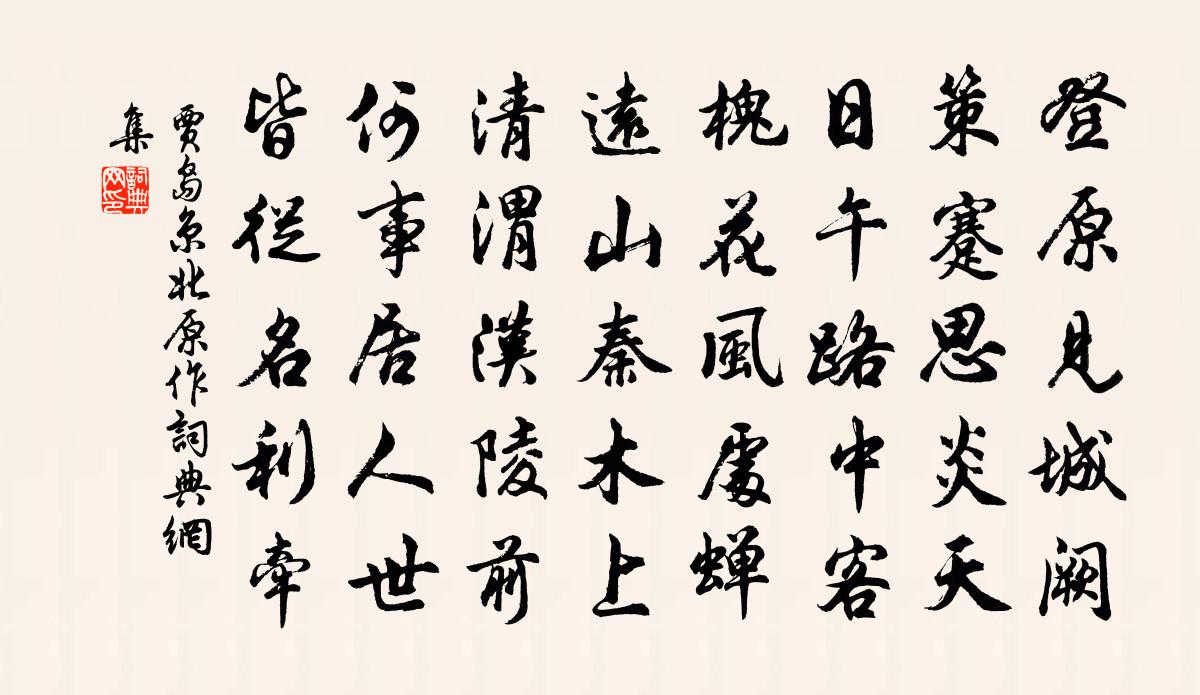 登原見城闕
策蹇思炎天
日午路中客
槐花風處蟬
遠山秦木上
清渭漢陵前
何事居人世
皆從名利牽
賈島京北原作詞典網
集
詞典
网印